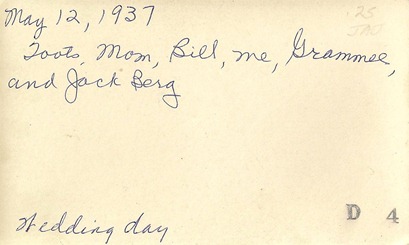 May 12, 1937
.25
JAJ
Toots, Mom, Bill, me, Grammee,
and Jack Berg
Wedding day
D 4